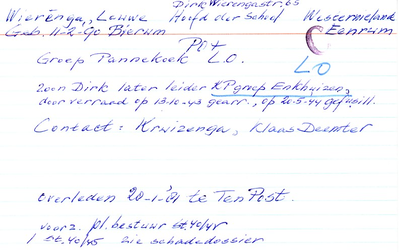 Dirk Wierengastr. 65
Wierenga, Louwe Hoofd der School Westernieland
Geb. 11-2-90 Bierum Eenrum
Pit
Groep Pannekoek L.O. LO
zoon Dirk later leider KP groep Enkhuizen,
door verraad op 13-10-43 gearr., op 20-5-44 gefusill.
Contact: Kruizenga, Klaas Deemter
overleden 20-1-'81 te Ten Post.
voorz. pl. bestuur St. 40/45
1 St. 40/45 zie schadedossier